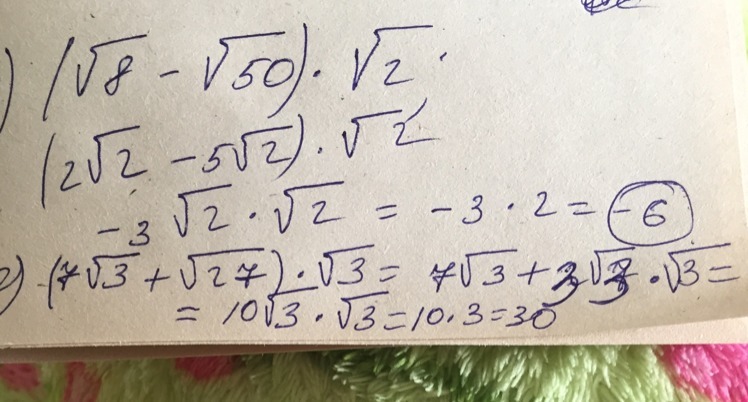 ) (√8 - √50) · √2 .
(2√2 - 5√2) · √2
-3 √2 · √2 = -3 · 2 = -6
2) (7√3 + √27) · √3 = 7√3 + 3√3 · √3 =
= 10√3 · √3 = 10 · 3 = 30